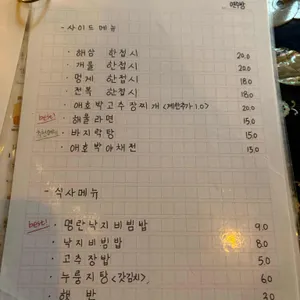 - 사이드 메뉴
· 해삼 한접시 20.0
· 개불 한접시 20.0
· 멍게 한접시 18.0
· 전복 한접시 18.0
· 애호박고추장찌개 <계란추가 1.0> 20.0
best! · 해물라면 15.0
· 바지락탕 15.0
· 애호박야채전 15.0
- 식사메뉴
best! · 명란낙지비빔밥 9.0
· 낙지비빔밥 8.0
· 고추장밥 5.0
· 누룽지탕 <갓김치> 6.0
· 햇반 2.0